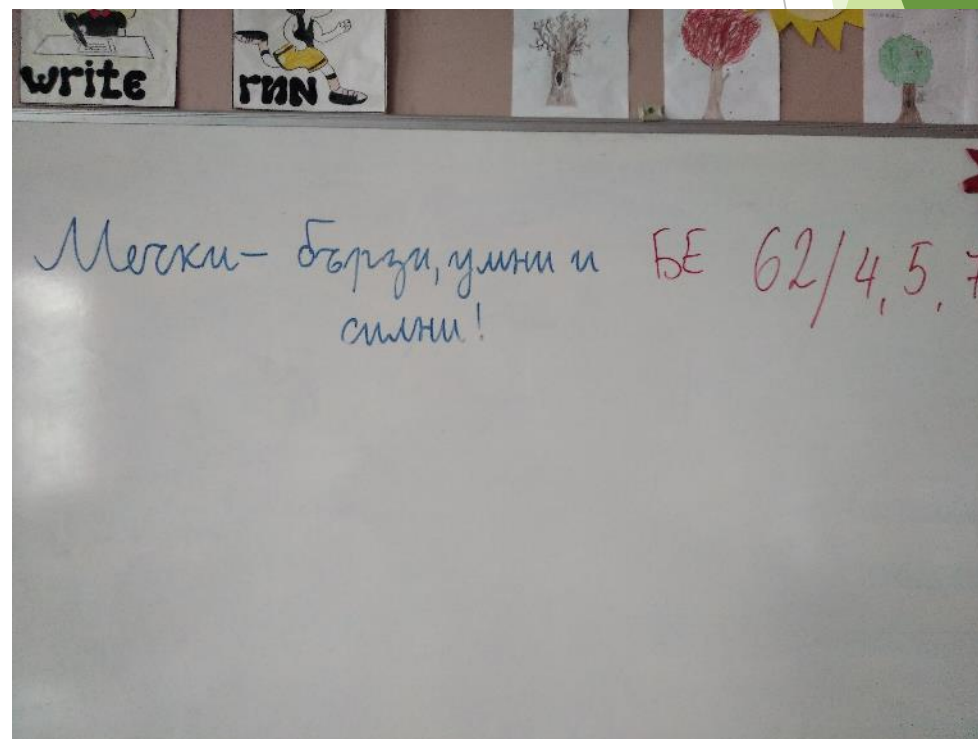 write
run
Мечки – бързи, умни и
силни!
БЕ 62/4, 5, 7